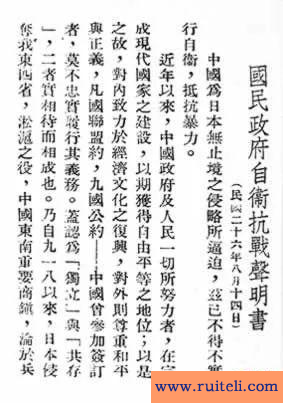 國民政府自衞抗戰聲明書
(民國二十六年八月十四日)
中國爲日本無止境之侵略所逼迫，茲已不得不實
行自衞，抵抗暴力。
近年以來，中國政府及人民一切所努力者，在完
成現代國家之建設，以期獲得自由平等之地位；以是
之故，對內致力於經濟文化之復興，對外則尊重和平
與正義，凡國聯盟約，九國公約——中國曾參加簽訂
者，莫不忠實履行其義務。蓋認爲「獨立」與「共存
」，二者實相待而相成也。乃自九一八以來，日本侵
奪我東四省，淞滬之役，中國東南重要商鎮，淪於兵
www.ruiteli.com